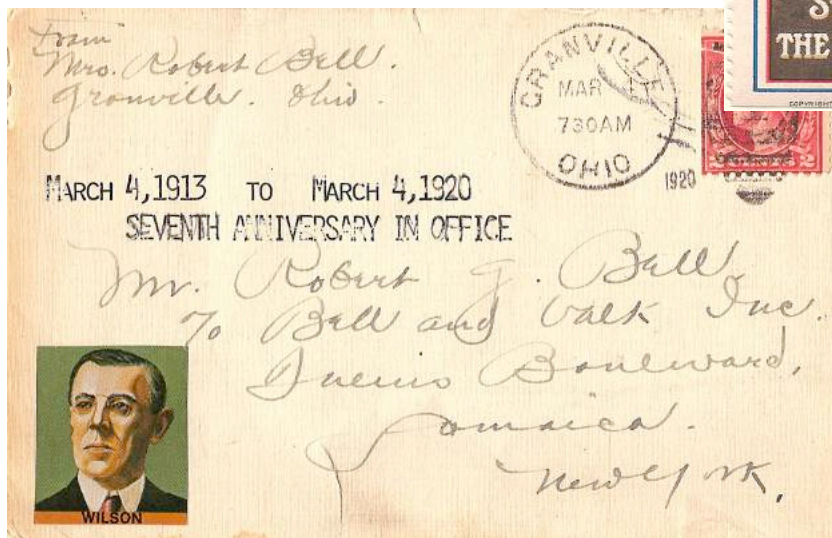 From
Mrs. Robert Bell.
Granville. Ohio.
GRANVILLE
MAR
730AM
OHIO
1920
THE
COPYRIGHT
2
MARCH 4,1913 TO MARCH 4,1920
SEVENTH ANNIVERSARY IN OFFICE
Mr. Robert G. Bell
% Bell and Valk Inc.
Boulevard,
Jamaica.
New York.
WILSON